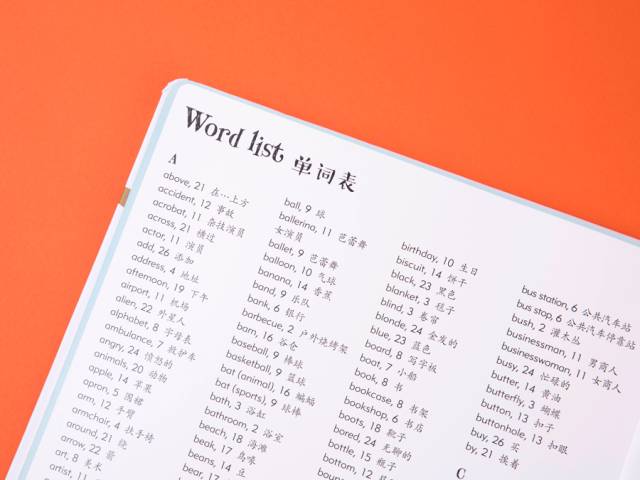 Word list 单词表
A
above, 21 在…上方
accident, 12 事故
acrobat, 11 杂技演员
across, 21 横过
actor, 11 演员
add, 26 添加
address, 4 地址
afternoon, 19 下午
airport, 11 机场
alien, 22 外星人
alphabet, 8 字母表
ambulance, 7 救护车
angry, 24 愤怒的
animals, 20 动物
apple, 14 苹果
apron, 5 围裙
arm, 12 手臂
armchair, 4 扶手椅
around, 21 绕
arrow, 22 箭
art, 8 美术
artist, 11
ball, 9 球
ballerina, 11 芭蕾舞
女演员
ballet, 9 芭蕾舞
balloon, 10 气球
banana, 14 香蕉
band, 9 乐队
bank, 6 银行
barbecue, 2 户外烧烤架
barn, 16 谷仓
baseball, 9 棒球
basketball, 9 篮球
bat (animal), 16 蝙蝠
bat (sports), 9 球棒
bath, 3 浴缸
bathroom, 2 浴室
beach, 18 海滩
beak, 17 鸟喙
beans, 14 豆
bear, 17
birthday, 10 生日
biscuit, 14 饼干
black, 23 黑色
blanket, 3 毯子
blind, 3 卷帘
blonde, 24 金发的
blue, 23 蓝色
board, 8 写字板
boat, 7 小船
book, 8 书
bookcase, 8 书架
bookshop, 6 书店
boots, 18 靴子
bored, 24 无聊的
bottle, 15 瓶子
bottom, 12
bus station, 6 公共汽车站
bus stop, 6 公共汽车停靠站
bush, 2 灌木丛
businessman, 11 男商人
businesswoman, 11 女商人
busy, 24 忙碌的
butter, 14 黄油
butterfly, 3 蝴蝶
button, 13 扣子
buttonhole, 13 扣眼
buy, 26 买
by, 21 挨着
C